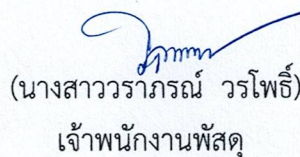 (นางสาววราภรณ์ วรโพธิ์)
เจ้าพนักงานพัสดุ